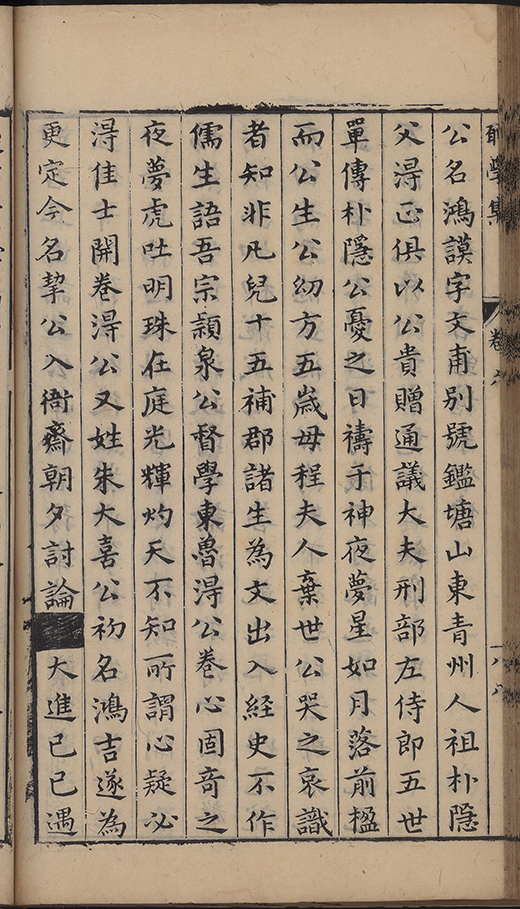 耻學集
卷六
公名鴻謨字文甫別號鑑塘山東青州人祖朴隱
父淂正俱以公貴贈通議大夫刑部左侍郎五世
單傳朴隱公憂之日禱于神夜夢星如月落前楹
而公生公幼方五歲母程夫人棄世公哭之哀識
者知非凡兒十五補郡諸生為文出入経史不作
儒生語吾宗頴泉公督學東魯淂公卷心固竒之
夜夢虎吐明珠在庭光輝灼天不知所謂心疑必
淂佳士開卷淂公又姓朱大喜公初名鴻吉遂為
更定今名挈公入衙齋朝夕討論大進已巳遇